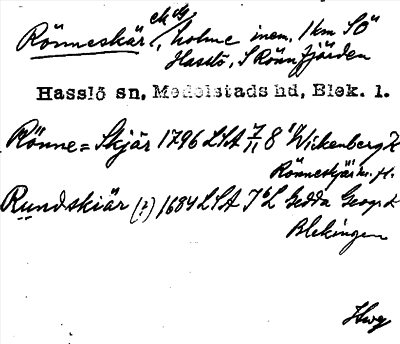 Rönneskär, holme inom. 1 km SÖ
Hasslö, S Rönnfjärden
Hasslö sn, Medelstads hd, Blek. l.
Rönne=Skjär 1796 LSA 8 Wickenberg K
Rönneskjär
Rundskiär (?) 1684 LSA Gedda Geogr K
Blekingen
Hwg